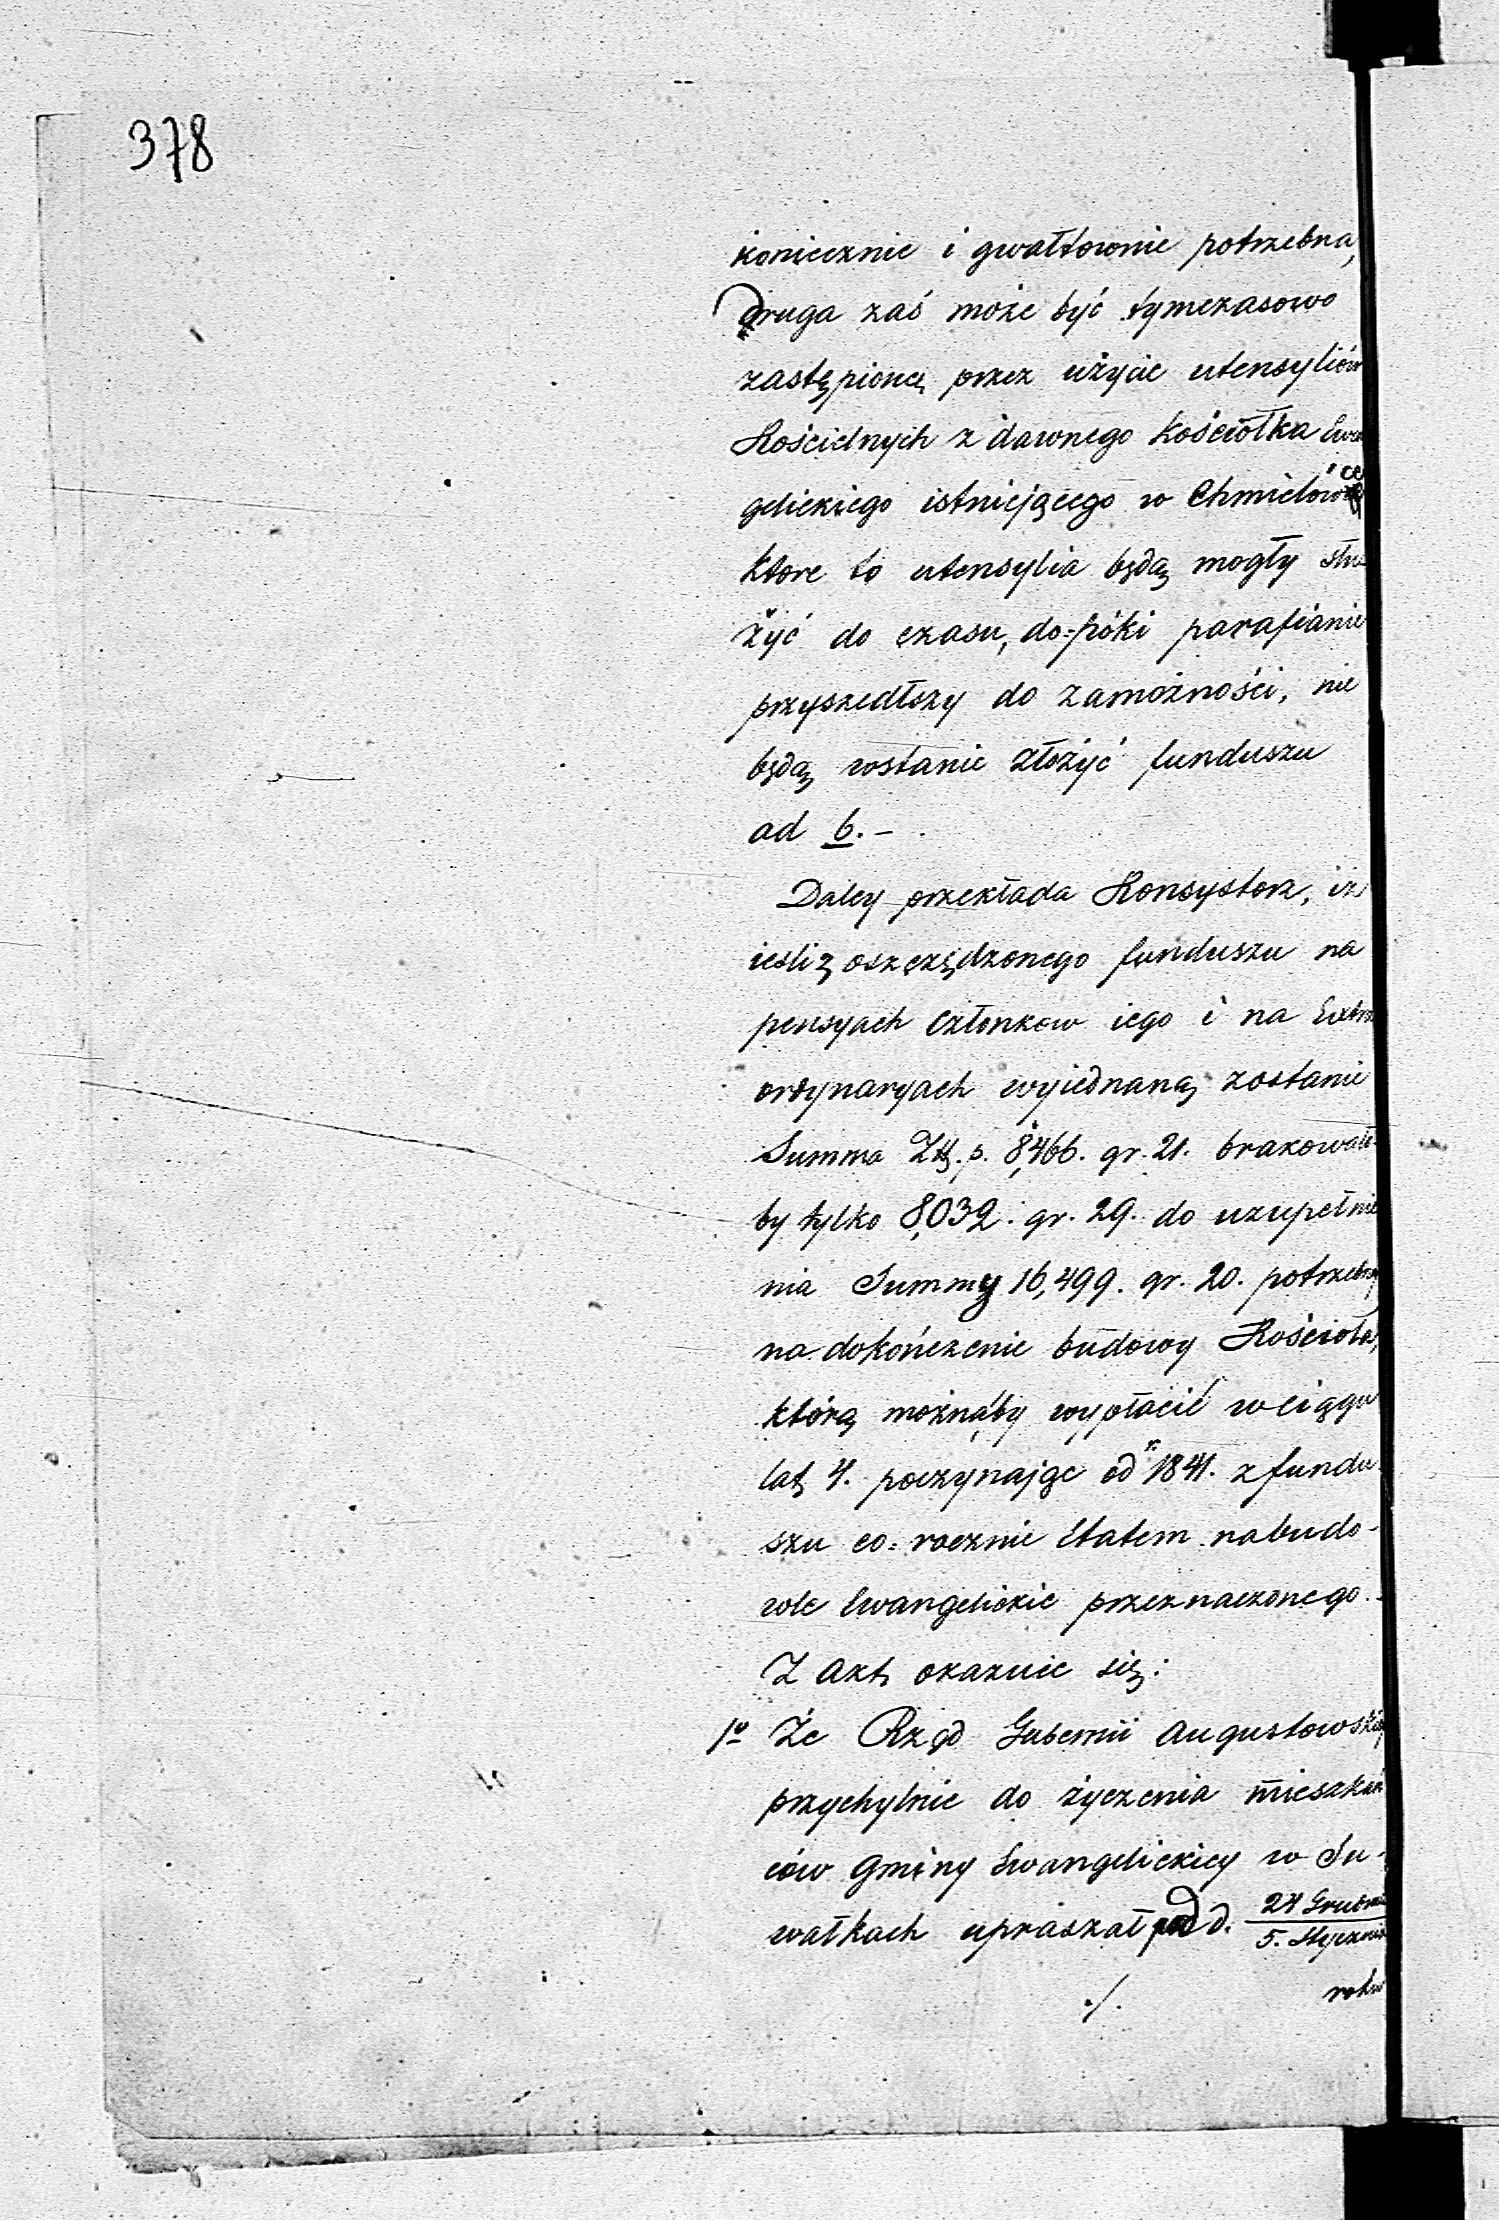 378
koniecznie i gwałtownie potrzebna,
druga zaś może być tymczasowo
zastępioną przez użycie utensyliów
Kościelnych z dawnego Kościółka Ewa
gelickiego istniejącego w Chmielówce
które to utensylia będą mogły słu
żyć do czasu, do=póki parafianie
przyszedłszy do zamożności, nie
będą wstanie złożyć funduszu
ad 6.-
Daley przekłada Konsystorz, iż
ieśli z oszczędzonego funduszu na
pensyach członkow iego i na Extra
ordynaryach wyiednaną zostanie
Summa Złł. p. 8,466. gr. 21. brakowało
by tylko 8,032. gr. 29. do uzupełnie
nia Summy 16,499. gr. 20. potrzebney
na dokończenie budowy Kościoła,
którą możnaby wypłacić w ciągu
lat 4. poczynając od r. 1841. z fundu
szu co=rocznie Etatem na budo-
wle Ewangelickie przeznaczonego.
Z Akt okazuie się:
1º Że Rząd Gubernii Augustowskiey
przychylnie do życzenia mieszkań
ców Gminy Ewangelickiey w Su-
wałkach upraszał pod d. 24 Grudnia
5. Stycznia
roku
./.